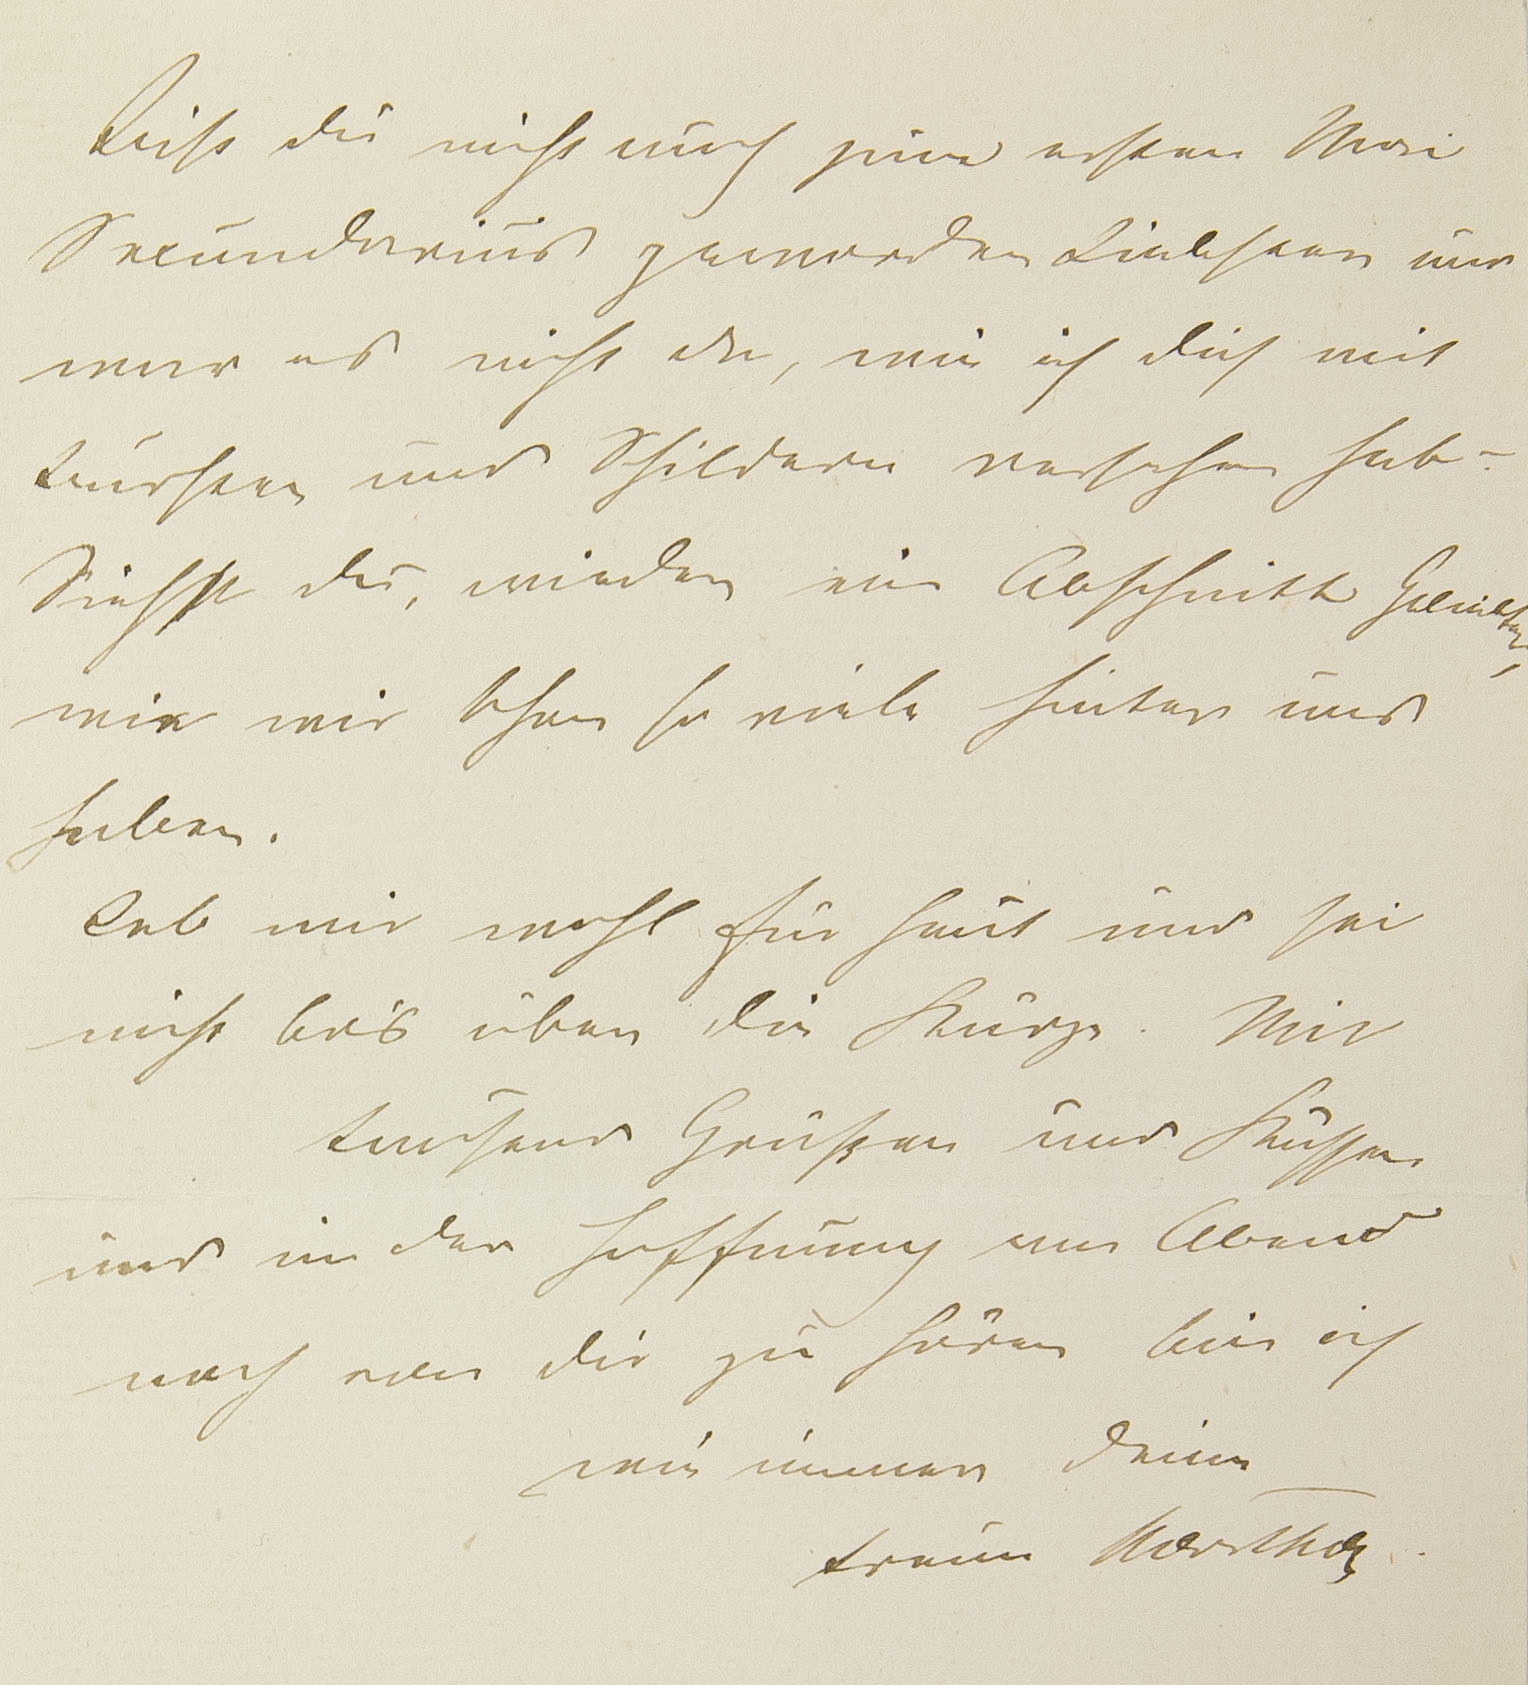 Bist du nicht auch zum ersten Mai
Secundarius geworden Liebster und
war es nicht da, wie ich dich mit
Bürsten und Schildern versehen hab?
Siehst du, wieder ein Abschnitt Geliebter,
wie wir schon so viele hinter uns
haben.
Leb mir wohl für heut und sei
nicht bös über die Kürze. Mit
tausend Grüßen und Küssen
und in der Hoffnung am Abend
noch von dir zu hören bin ich
wie immer deine
treue Martha.